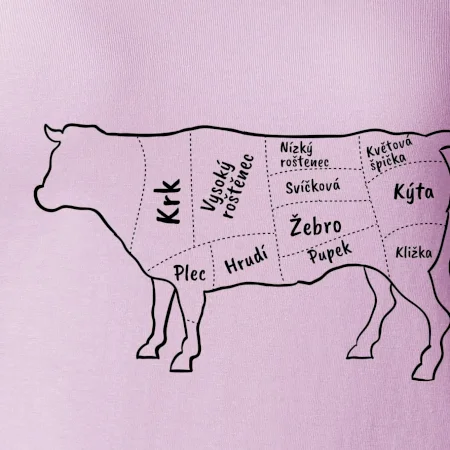 Krk
Vysoký
roštěnec
Nízký
roštenec
Svíčková
Žebro
Pupek
Květová
špička
Kýta
Kližka
Plec
Hrudí